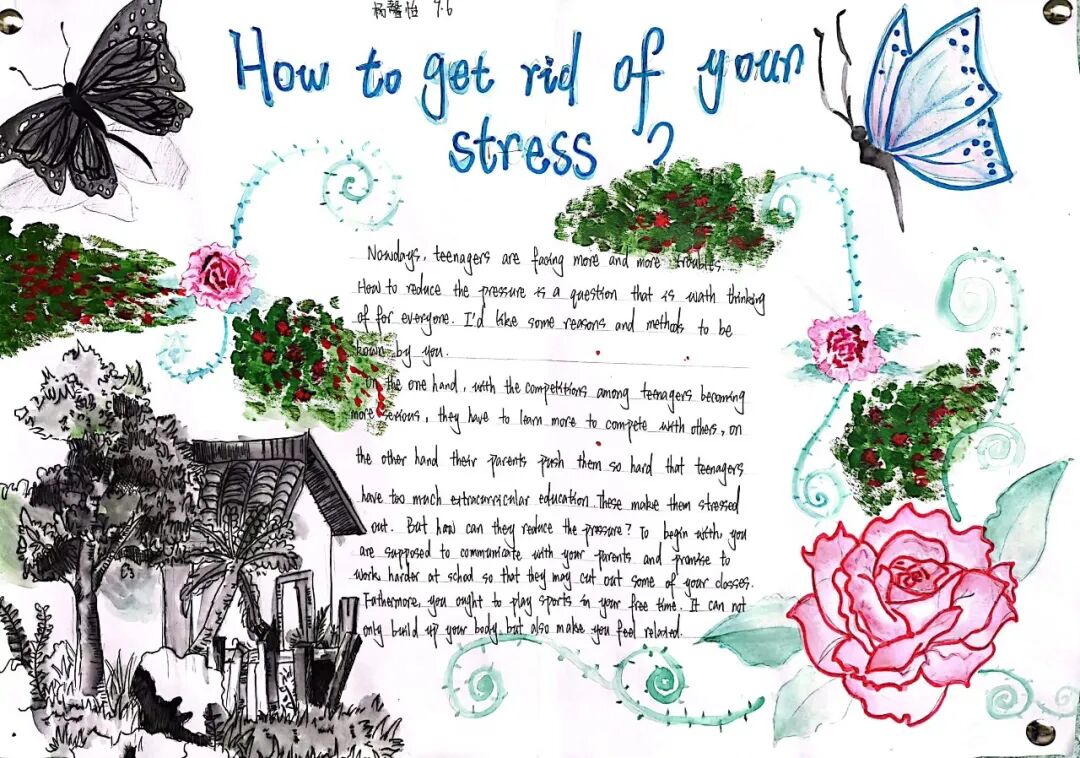 杨馨怡 7.6
How to get rid of your
stress ?
Nowdays, teenagers are facing more and more troubls.
How to reduce the pressure is a question that is wath thinking
of for everyone. I'd like some reasons and methods to be
kown by you.
On the one hand, with the competitions among teenagers becoming
more serious, they have to learn more to compete with others, on
the other hand their parents push them so hard that teenagers
have too much extracurricular education. These make them stressed
out. But how can they reduce the pressure? To begin with, you
are supposed to communicate with your parents and promise to
work harder at school so that they may cut out some of your classes.
Futhermore, you ought to play sports in your free time. It can not
only build up your body, but also make you feel relaxed.